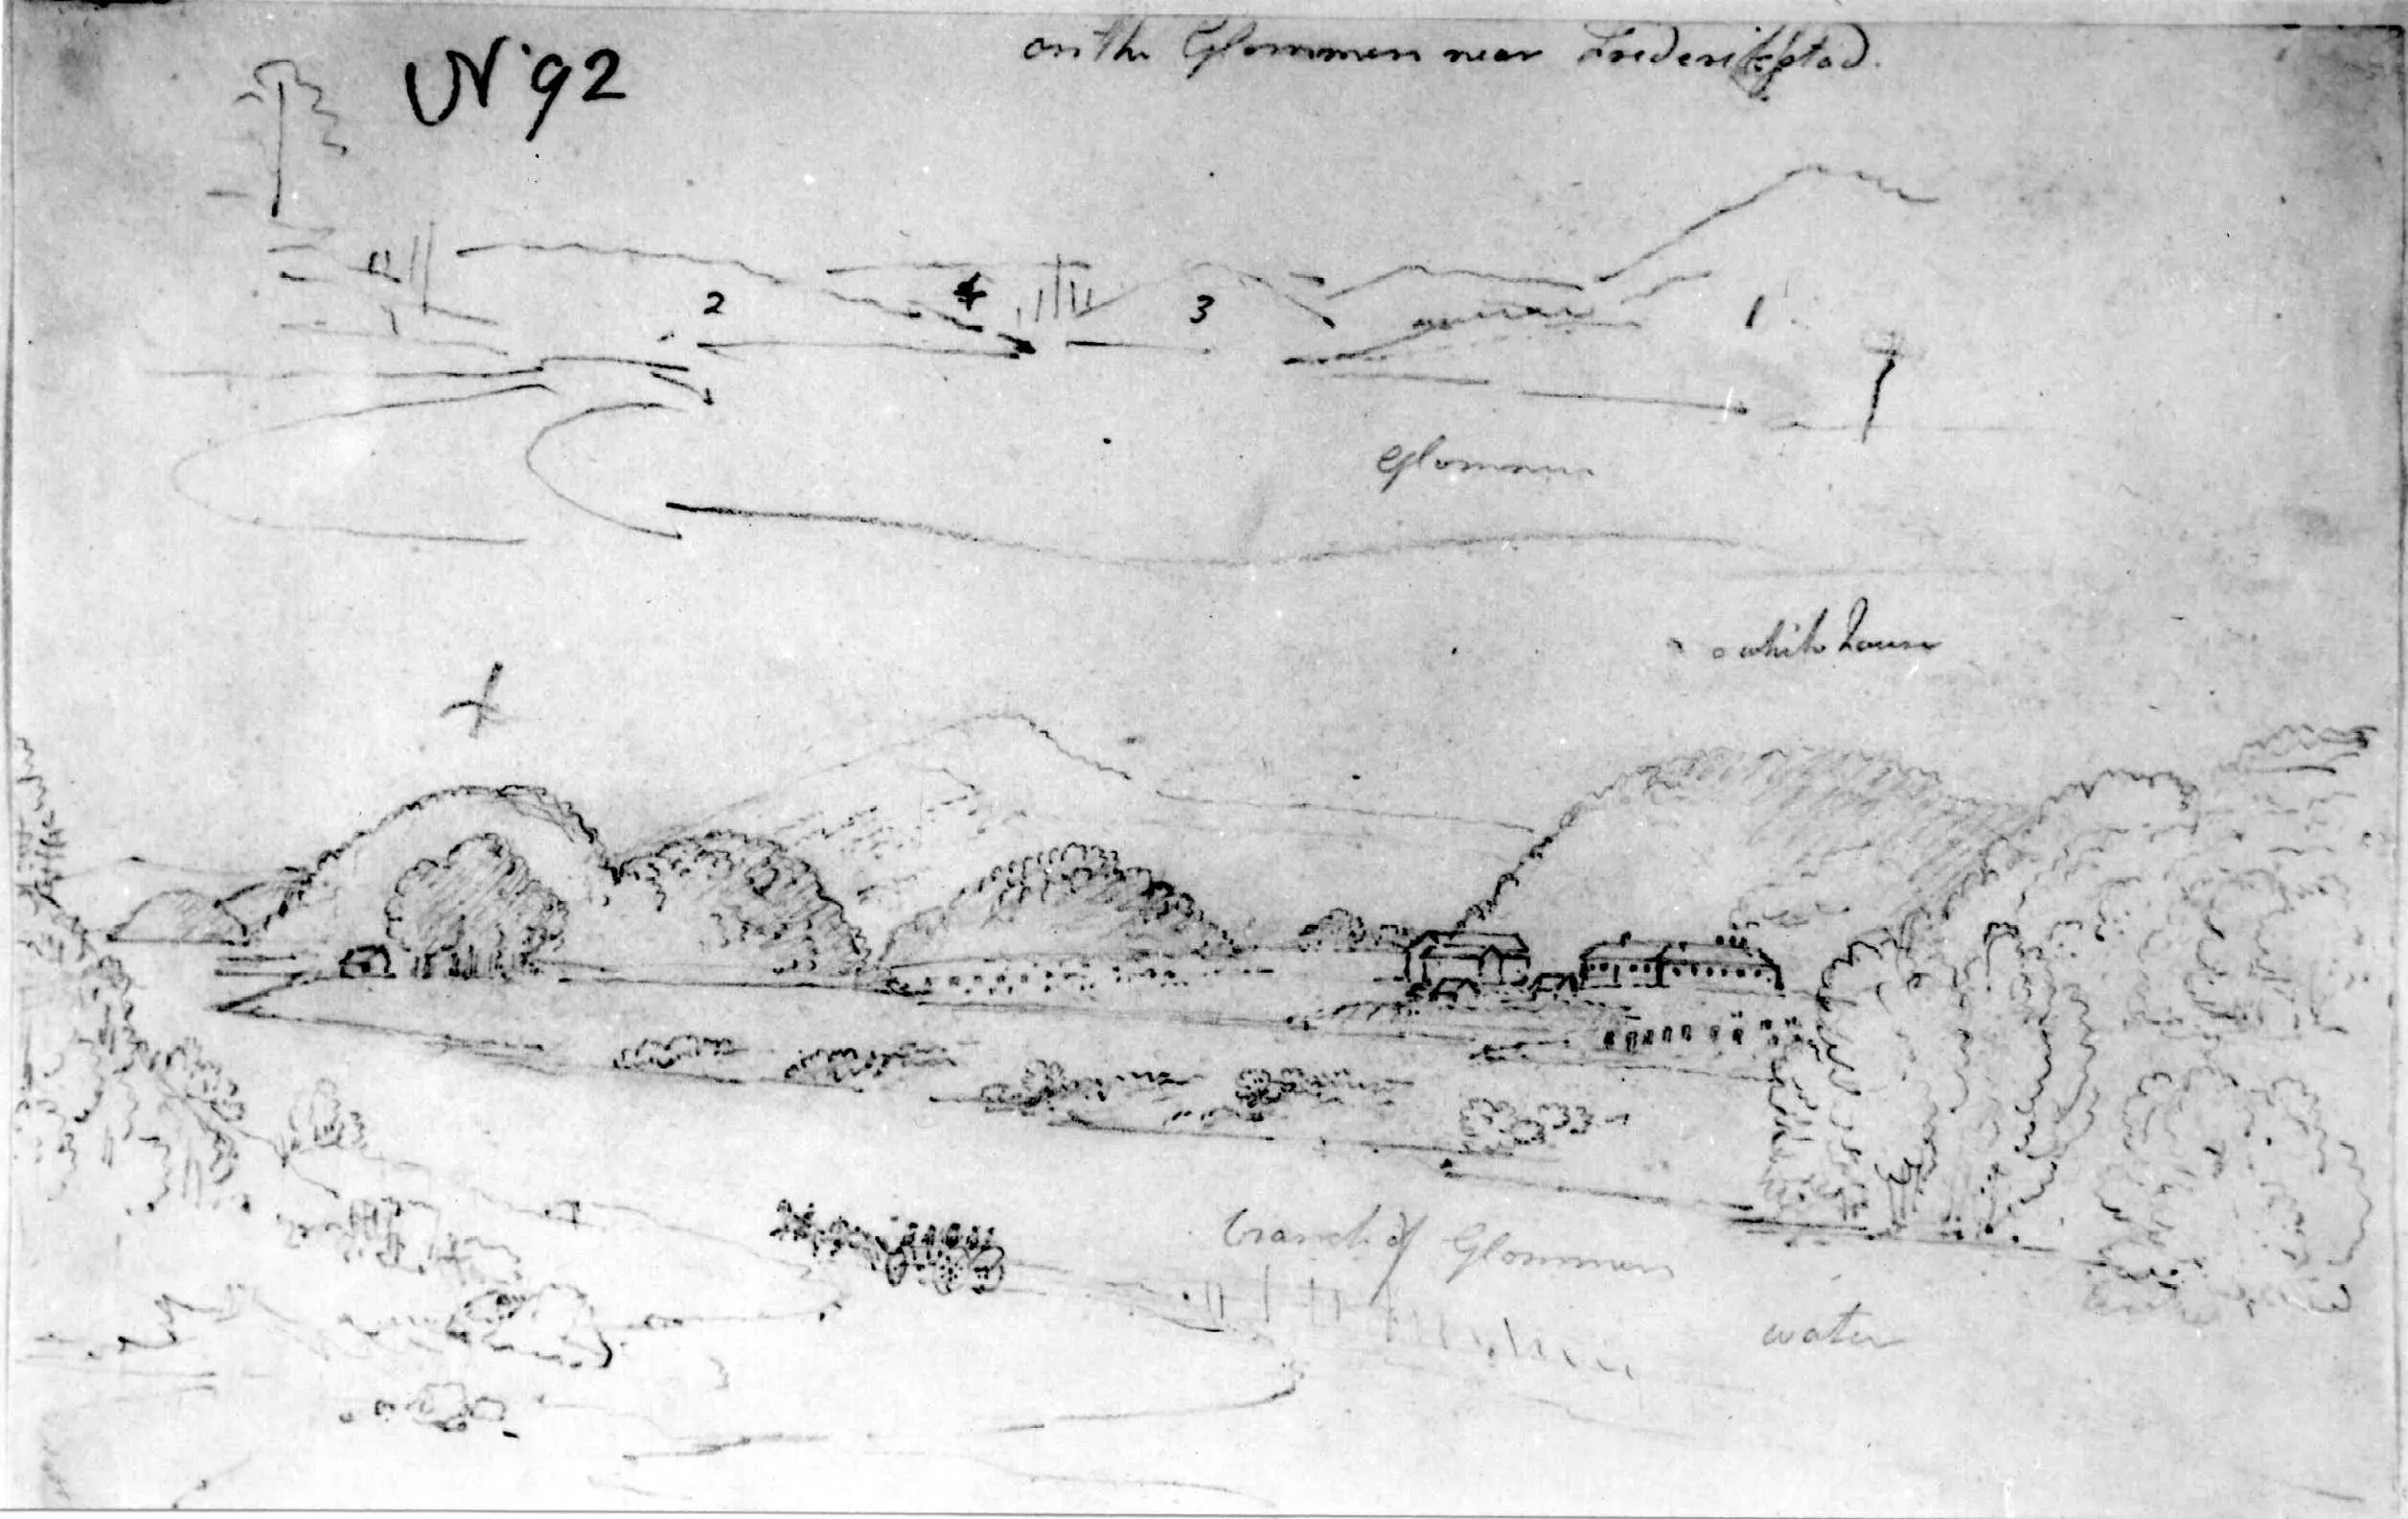 Nº 92
on the Glommen near Frederikstad.
2 4 3 1
Glommen
white house
branch of Glommen
water